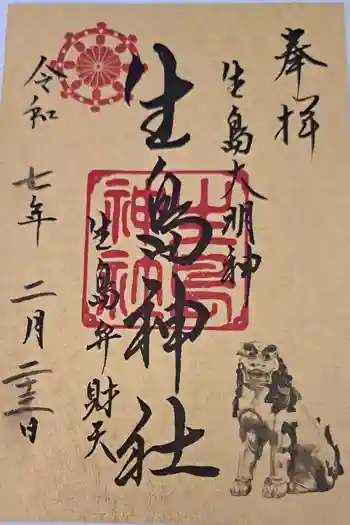 奉拝
生島大明神
生島神社
生島神社
生島弁財天
令和七年二月二十三日